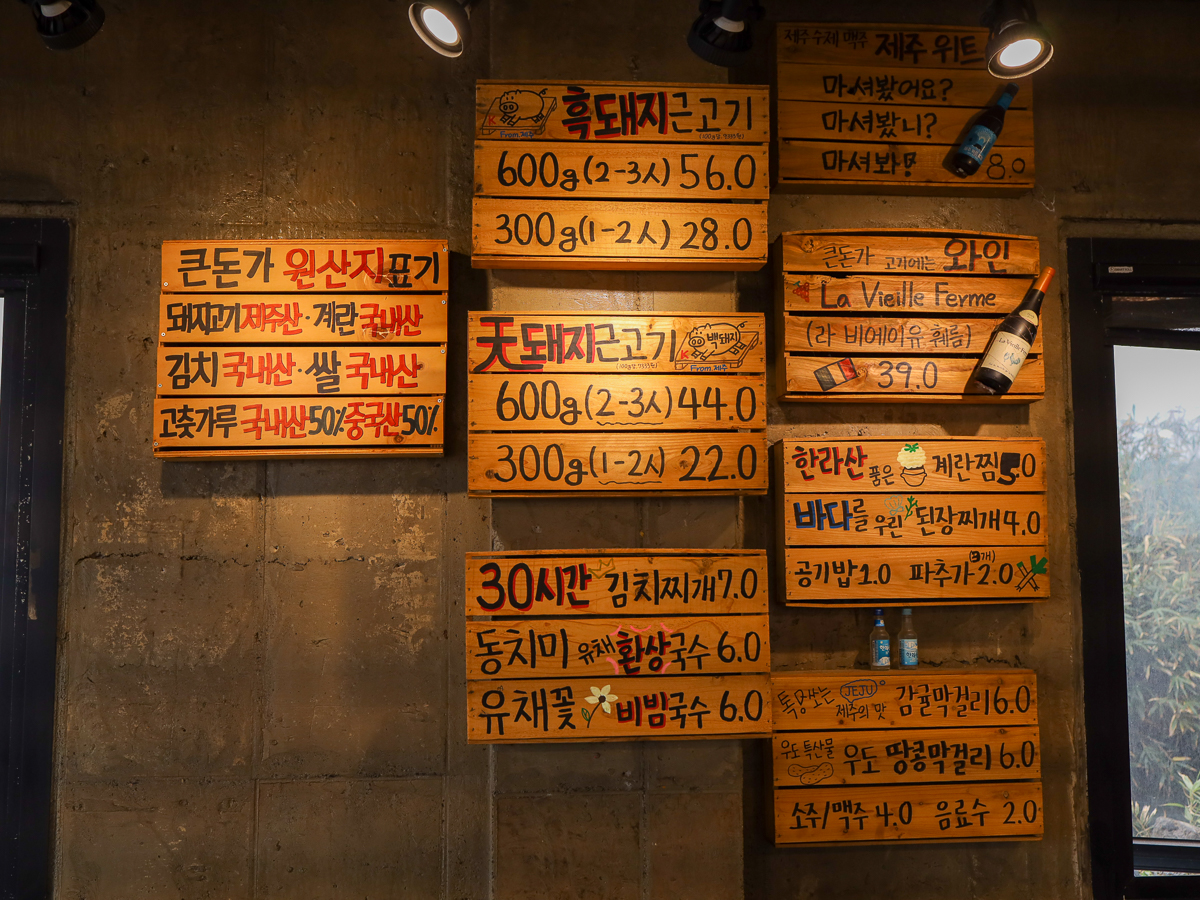 큰돈가 원산지표기
돼지고기 제주산·계란 국내산
김치 국내산·쌀 국내산
고춧가루 국내산50% 중국산50%
K From.제주 흑돼지근고기
600g(2-3人) 56.0
300g(1-2人) 28.0
天돼지근고기 백돼지 K From.제주
600g(2-3人) 44.0
300g(1-2人) 22.0
30시간 김치찌개 7.0
동치미 유채 환상국수 6.0
유채꽃 비빔국수 6.0
제주 수제 맥주 제주 위트
마셔봤어요?
마셔봤니?
마셔봐! 8.0
큰돈가 고기에는 와인
La Vieille Ferme
(라 비에이유 훼름)
39.0
La Vieille Ferme
한라산 품은 계란찜 5.0
바다를 우린 된장찌개 4.0
공기밥 1.0 파추가 (3개) 2.0
톡 쏘는 JEJU 제주의 맛 감귤막걸리 6.0
우도 특산물 우도 땅콩막걸리 6.0
소주/맥주 4.0 음료수 2.0